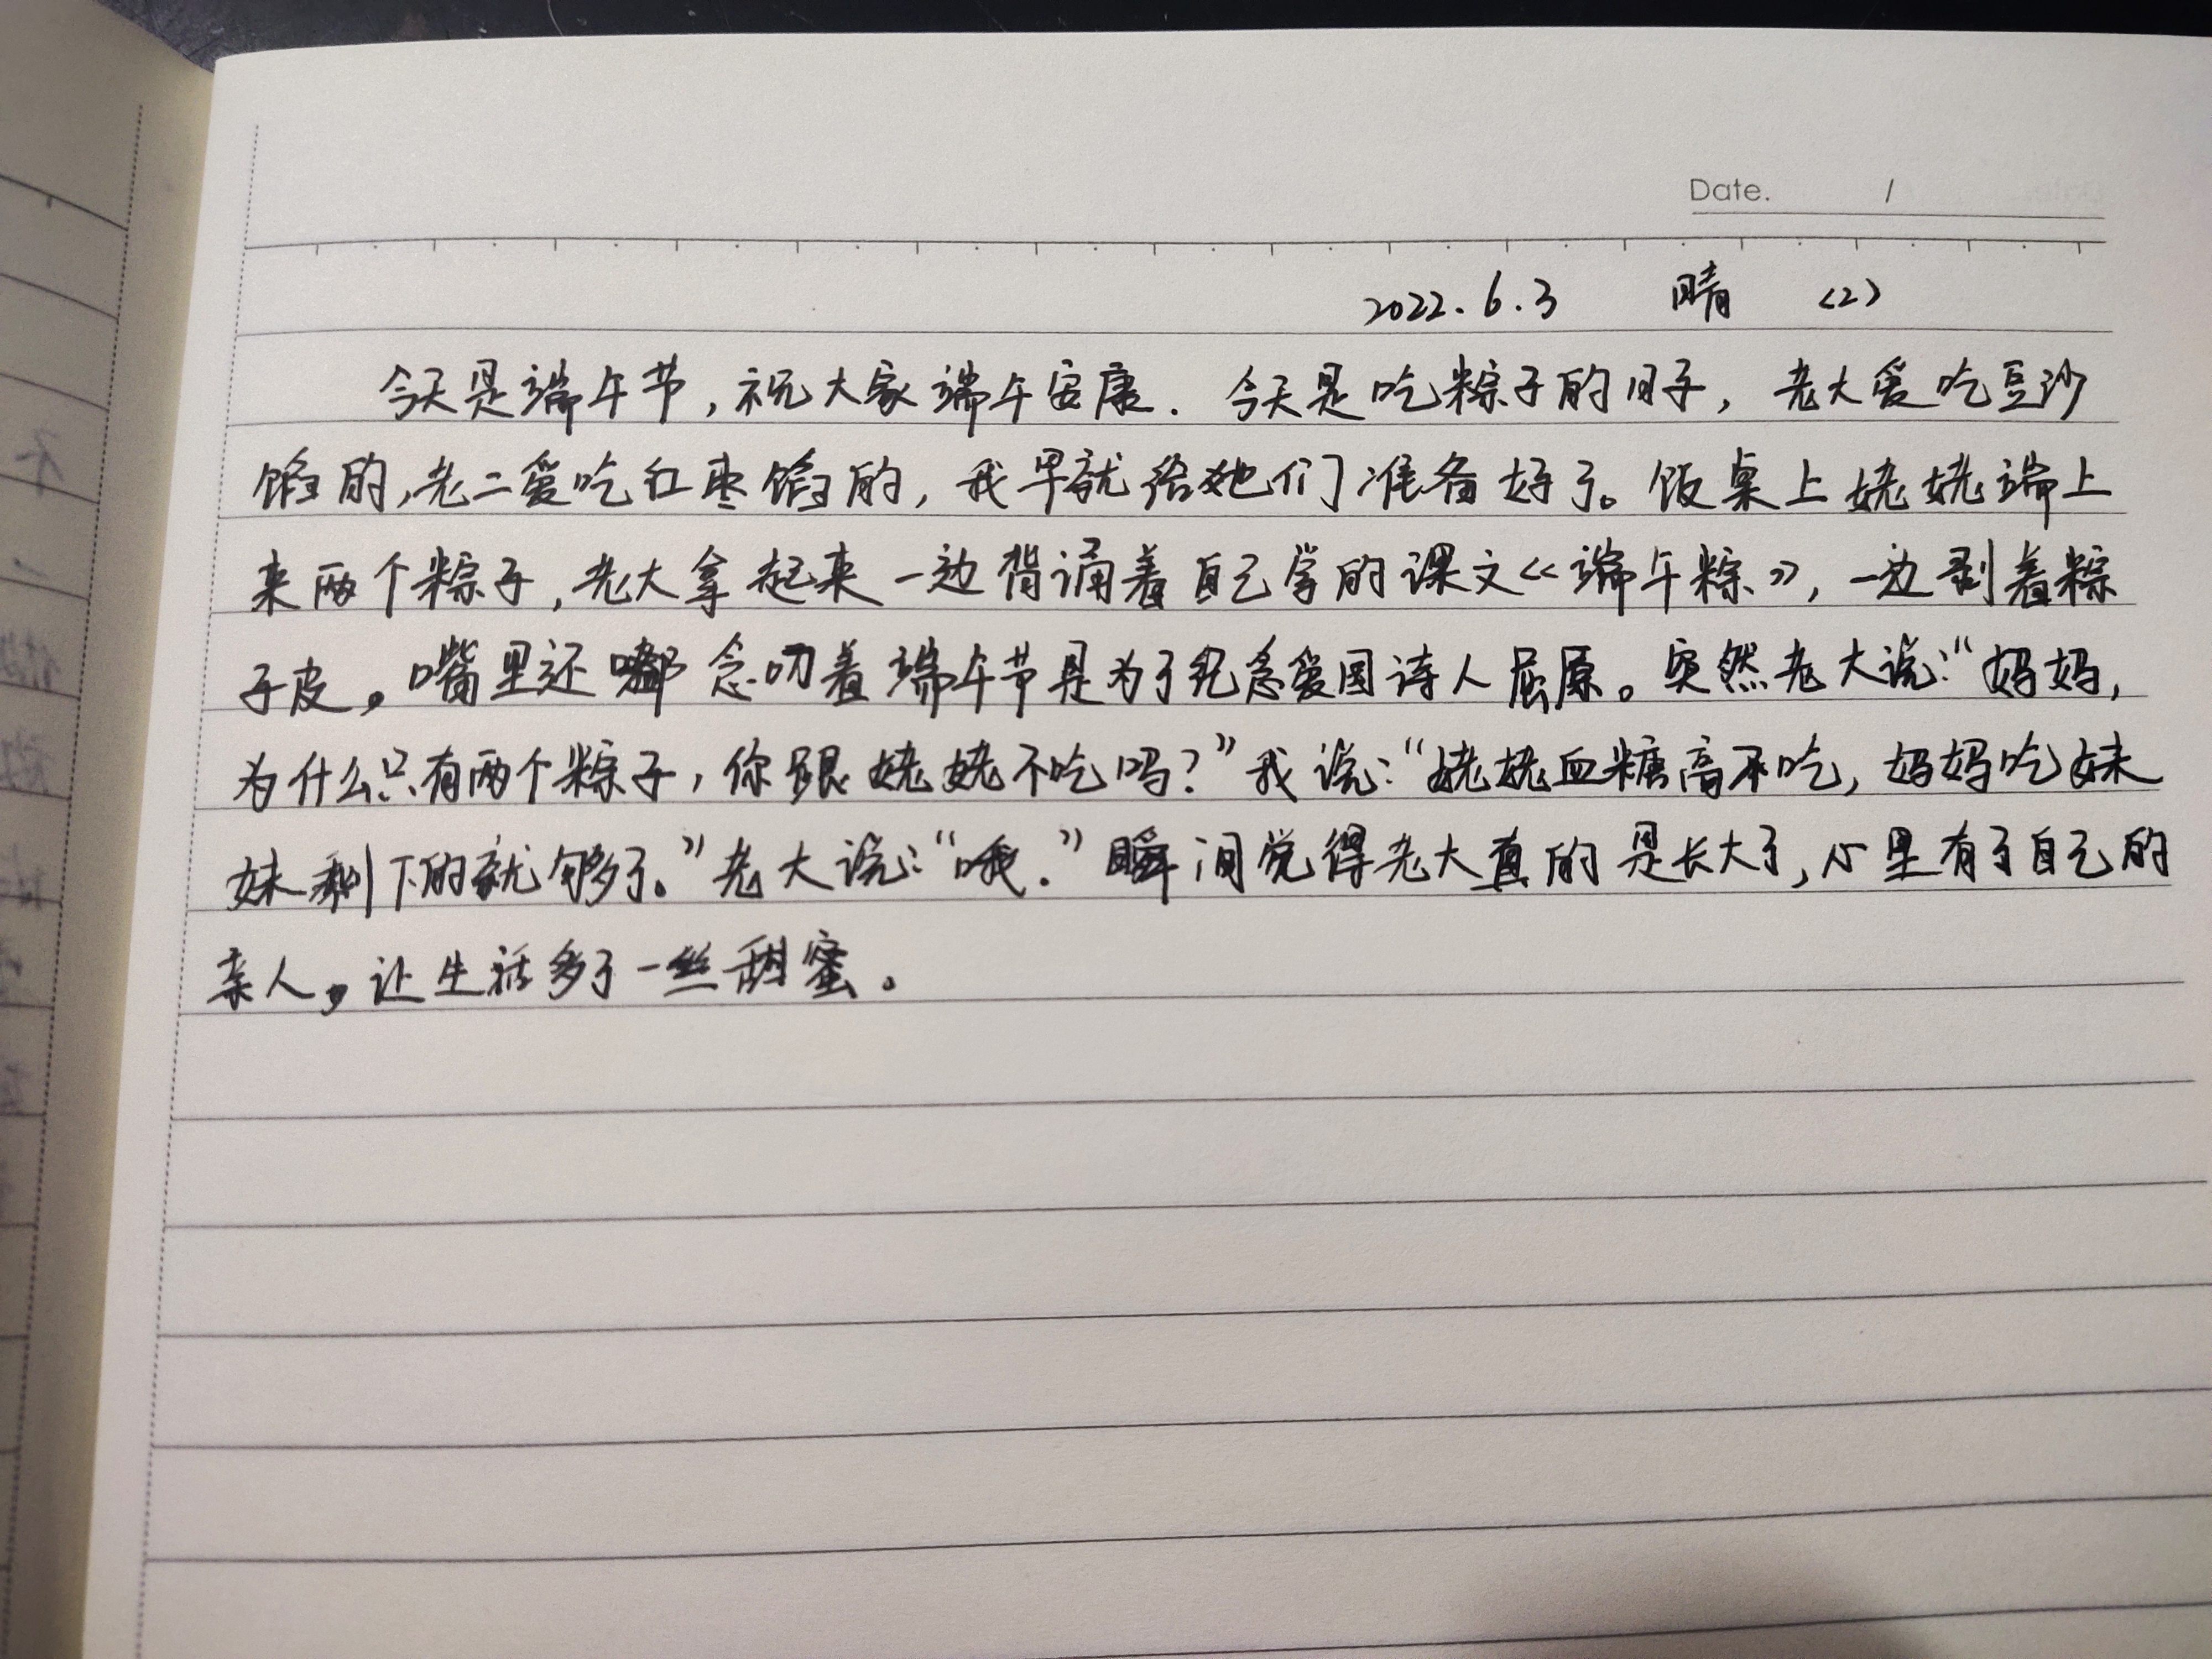 Date. /
2022.6.3 晴 <2>
今天是端午节,祝大家端午安康. 今天是吃粽子的日子, 老大爱吃豆沙
馅的,老二爱吃红枣馅的, 我早就给她们准备好了。饭桌上姥姥端上
来两个粽子,老大拿起来一边背诵着自己学的课文《端午粽》, 一边剥着粽
子皮。嘴里还嘟念叨着端午节是为了纪念爱国诗人屈原。突然老大说:“妈妈,
为什么只有两个粽子, 你跟姥姥不吃吗?”我说:“姥姥血糖高不吃, 妈妈吃妹
妹剩下的就够了。”老大说:“哦.”瞬间觉得老大真的是长大了, 心里有了自己的
亲人, 让生活多了一丝甜蜜。